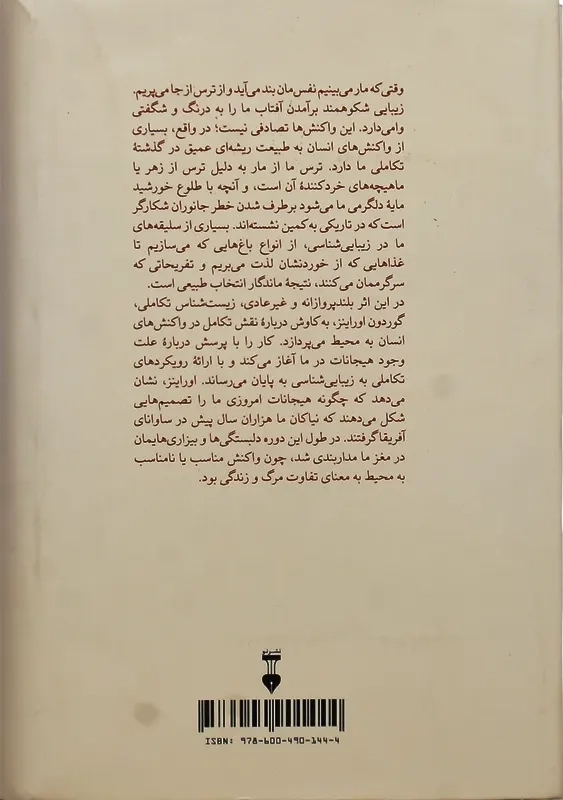 وقتی‌که مار می‌بینیم نفس‌مان بند می‌آید و از ترس از جا می‌پریم.
زیبایی شکوهمند برآمدن آفتاب ما را به درنگ و شگفتی
وامی‌دارد. این واکنش‌ها تصادفی نیست؛ در واقع، بسیاری
از واکنش‌های انسان به طبیعت ریشه‌ای عمیق در گذشتهٔ
تکاملی ما دارد. ترس ما از مار به دلیل ترس از زهر یا
ماهیچه‌های خردکنندهٔ آن است، و آنچه با طلوع خورشید
مایهٔ دلگرمی ما می‌شود برطرف شدن خطر جانوران شکارگر
است که در تاریکی به کمین نشسته‌اند. بسیاری از سلیقه‌های
ما در زیبایی‌شناسی، از انواع باغ‌هایی که می‌سازیم تا
غذاهایی که از خوردنشان لذت می‌بریم و تفریحاتی که
سرگرممان می‌کنند، نتیجهٔ ماندگار انتخاب طبیعی است.
در این اثر بلندپروازانه و غیرعادی، زیست‌شناس تکاملی،
گوردون اوراینز، به کاوش دربارهٔ نقش تکامل در واکنش‌های
انسان به محیط می‌پردازد. کار را با پرسش دربارهٔ علت
وجود هیجانات در ما آغاز می‌کند و با ارائهٔ رویکردهای
تکاملی به زیبایی‌شناسی به پایان می‌رساند. اوراینز، نشان
می‌دهد که چگونه هیجانات امروزی ما را تصمیم‌هایی
شکل می‌دهند که نیاکان ما هزاران سال پیش در ساوانای
آفریقا گرفتند. در طول این دوره دلبستگی‌ها و بیزاری‌هایمان
در مغز ما مداربندی شد، چون واکنش مناسب یا نامناسب
به محیط به معنای تفاوت مرگ و زندگی بود.
نشر نو
ISBN: 978-600-490-144-4